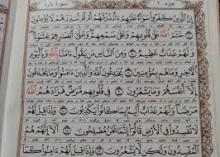 جزء ١ سورة بقره
إِنَّ الَّذِينَ كَفَرُوا سَوَاءٌ عَلَيْهِمْ ءَأَنْذَرْتَهُمْ أَمْ لَمْ تُنْذِرْهُمْ لَا يُؤْمِنُونَ
خَتَمَ اللهُ عَلَى قُلُوبِهِمْ وَعَلَى سَمْعِهِمْ وَعَلَى أَبْصَارِهِمْ غِشَاوَةٌ
وَلَهُمْ عَذَابٌ عَظِيمٌ وَمِنَ النَّاسِ مَنْ يَقُولُ آمَنَّا بِاللهِ وَبِالْيَوْمِ
الْآخِرِ وَمَا هُمْ بِمُؤْمِنِينَ يُخَادِعُونَ اللهَ وَالَّذِينَ آمَنُوا وَمَا يَخْدَعُونَ
إِلَّا أَنْفُسَهُمْ وَمَا يَشْعُرُونَ فِي قُلُوبِهِمْ مَرَضٌ فَزَادَهُمُ اللهُ
مَرَضًا وَلَهُمْ عَذَابٌ أَلِيمٌ بِمَا كَانُوا يَكْذِبُونَ وَإِذَا قِيلَ لَهُمْ
لَا تُفْسِدُوا فِي الْأَرْضِ قَالُوا إِنَّمَا نَحْنُ مُصْلِحُونَ أَلَا إِنَّهُمْ هُمُ
الْمُفْسِدُونَ وَلَكِنْ لَا يَشْعُرُونَ وَإِذَا قِيلَ لَهُمْ آمِنُوا كَمَا